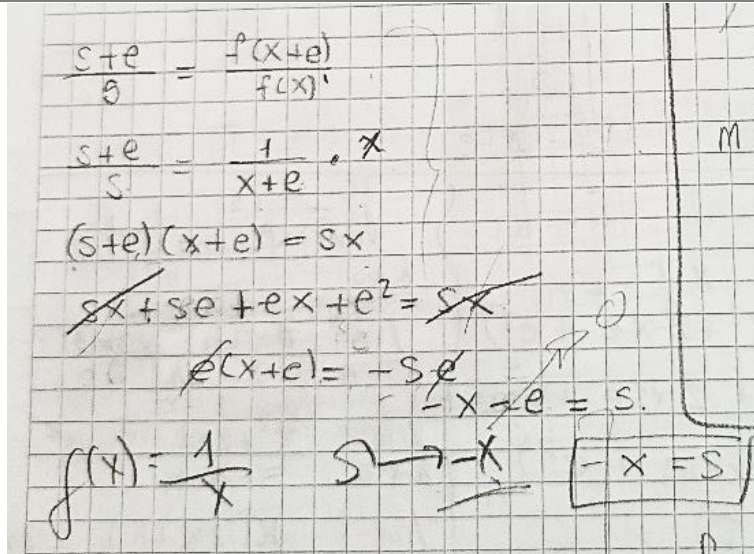 s+e/s = f(x+e)/f(x)
s+e/s = 1/x+e · x
(s+e)(x+e) = sx
sx + se + ex + e² = sx
0
e(x+e) = -se
-x-e = s.
f(x) = 1/x s → -x -x = s
M